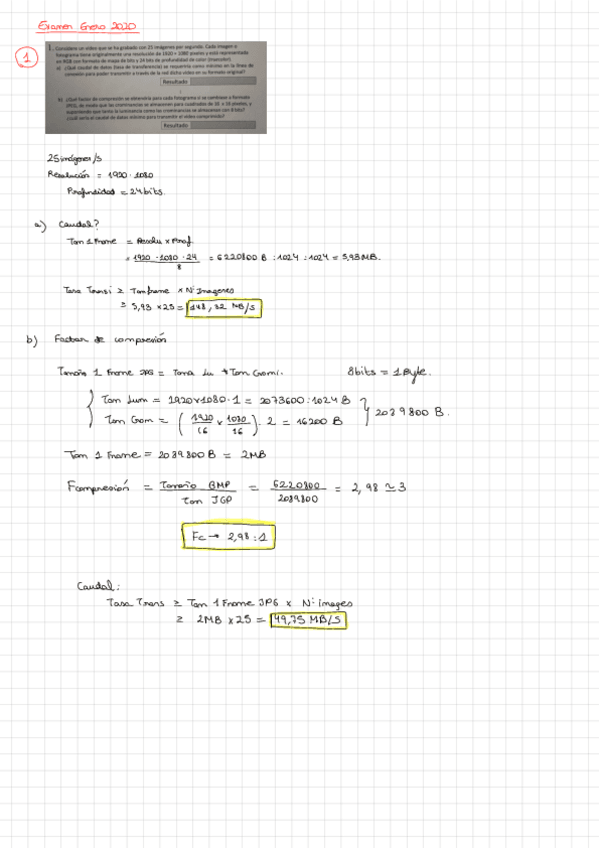 Examen Enero 2020
1
1. Considere un vídeo que se ha grabado con 25 imágenes por segundo. Cada imagen o
fotograma tiene originalmente una resolución de 1920 × 1080 píxeles y está representada
en RGB con formato de mapa de bits y 24 bits de profundidad de color (truecolor).
a) ¿Qué caudal de datos (tasa de transferencia) se requeriría como mínimo en la línea de
conexión para poder transmitir a través de la red dicho vídeo en su formato original?
Resultado
b) ¿Qué factor de compresión se obtendría para cada fotograma si se cambiase a formato
JPEG, de modo que las crominancias se almacenen para cuadrados de 16 x 16 píxeles, y
suponiendo que tanto la luminancia como las crominancias se almacenan con 8 bits?
¿Cuál sería el caudal de datos mínimo para transmitir el vídeo comprimido?
Resultado
25 imágenes/s
Resolución = 1920 · 1080
Profundidad = 24 bits.
a) Caudal?
Tam 1 Frame = Resolu x Prof
= 1920 · 1080 · 24 / 8 = 6220800 B : 1024 : 1024 = 5,93 MB.
Tasa Transi ≥ Tam frame x Nº Imagenes
≥ 5,93 x 25 = 148,32 MB/s
b) Factor de compresión
Tamaño 1 Frame JPG = Tama Lu + Tam Cromi. 8 bits = 1 Byte.
Tam Lum = 1920x1080 · 1 = 2073600 : 1024 B
Tam Crom = (1920/16 x 1080/16) · 2 = 16200 B
2089800 B.
Tam 1 Frame = 2089800 B = 2MB
Fcompresión = Tamaño BMP / Tam JGP = 6220800 / 2089800 = 2,98 ≃ 3
Fc → 2,98 : 1
Caudal:
Tasa Trans ≥ Tam 1 Frame JPG x Nº images
≥ 2MB x 25 = 49,75 MB/S